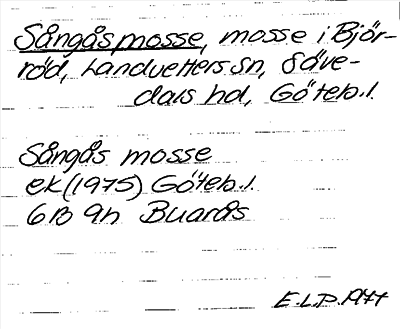 Sångås mosse, mosse i Björ-
röd, Landvetters sn, Säve-
dals hd, Göteb. l.
Sångås mosse
ek (1975) Göteb. l.
6B 9h Buarås
E.L.P. 1977